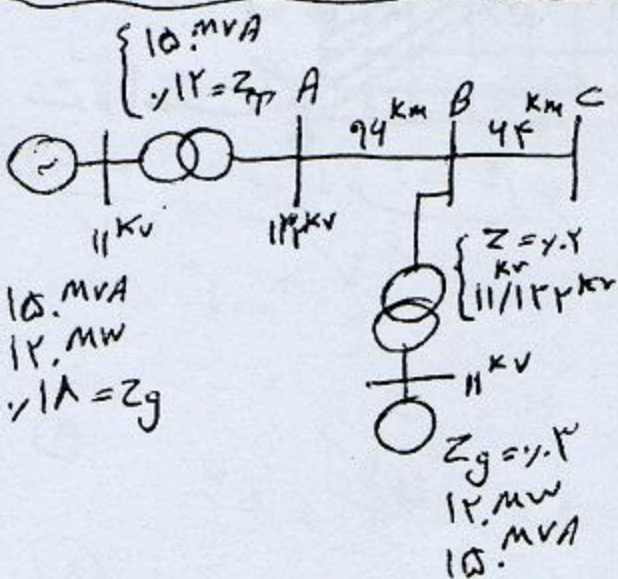 ۱۵۰ MVA
٪۱۲ = Z_T
A
۹۶ Km
B
۶۴ Km
C
~
۱۱ Kv
۱۳۲ Kv
۱۵۰ MVA
۱۲۰ MW
٪۱۸ = Zg
Z = ٪۲
۱۱ Kv/۱۳۲ Kv
۱۱ Kv
Zg = ٪۳
۱۲۰ MW
۱۵۰ MVA